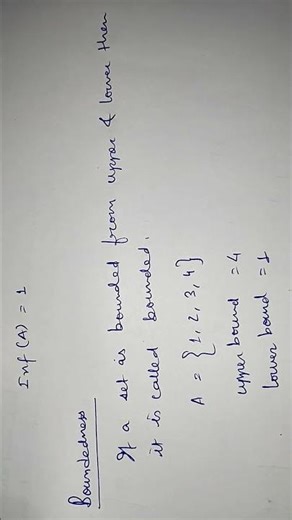 Inf(A) = 1
Boundedness
If a set as bounded from upper & lower then
it is called bounded.
A = {1, 2, 3, 4}
upper bound = 4
lower bound = 1